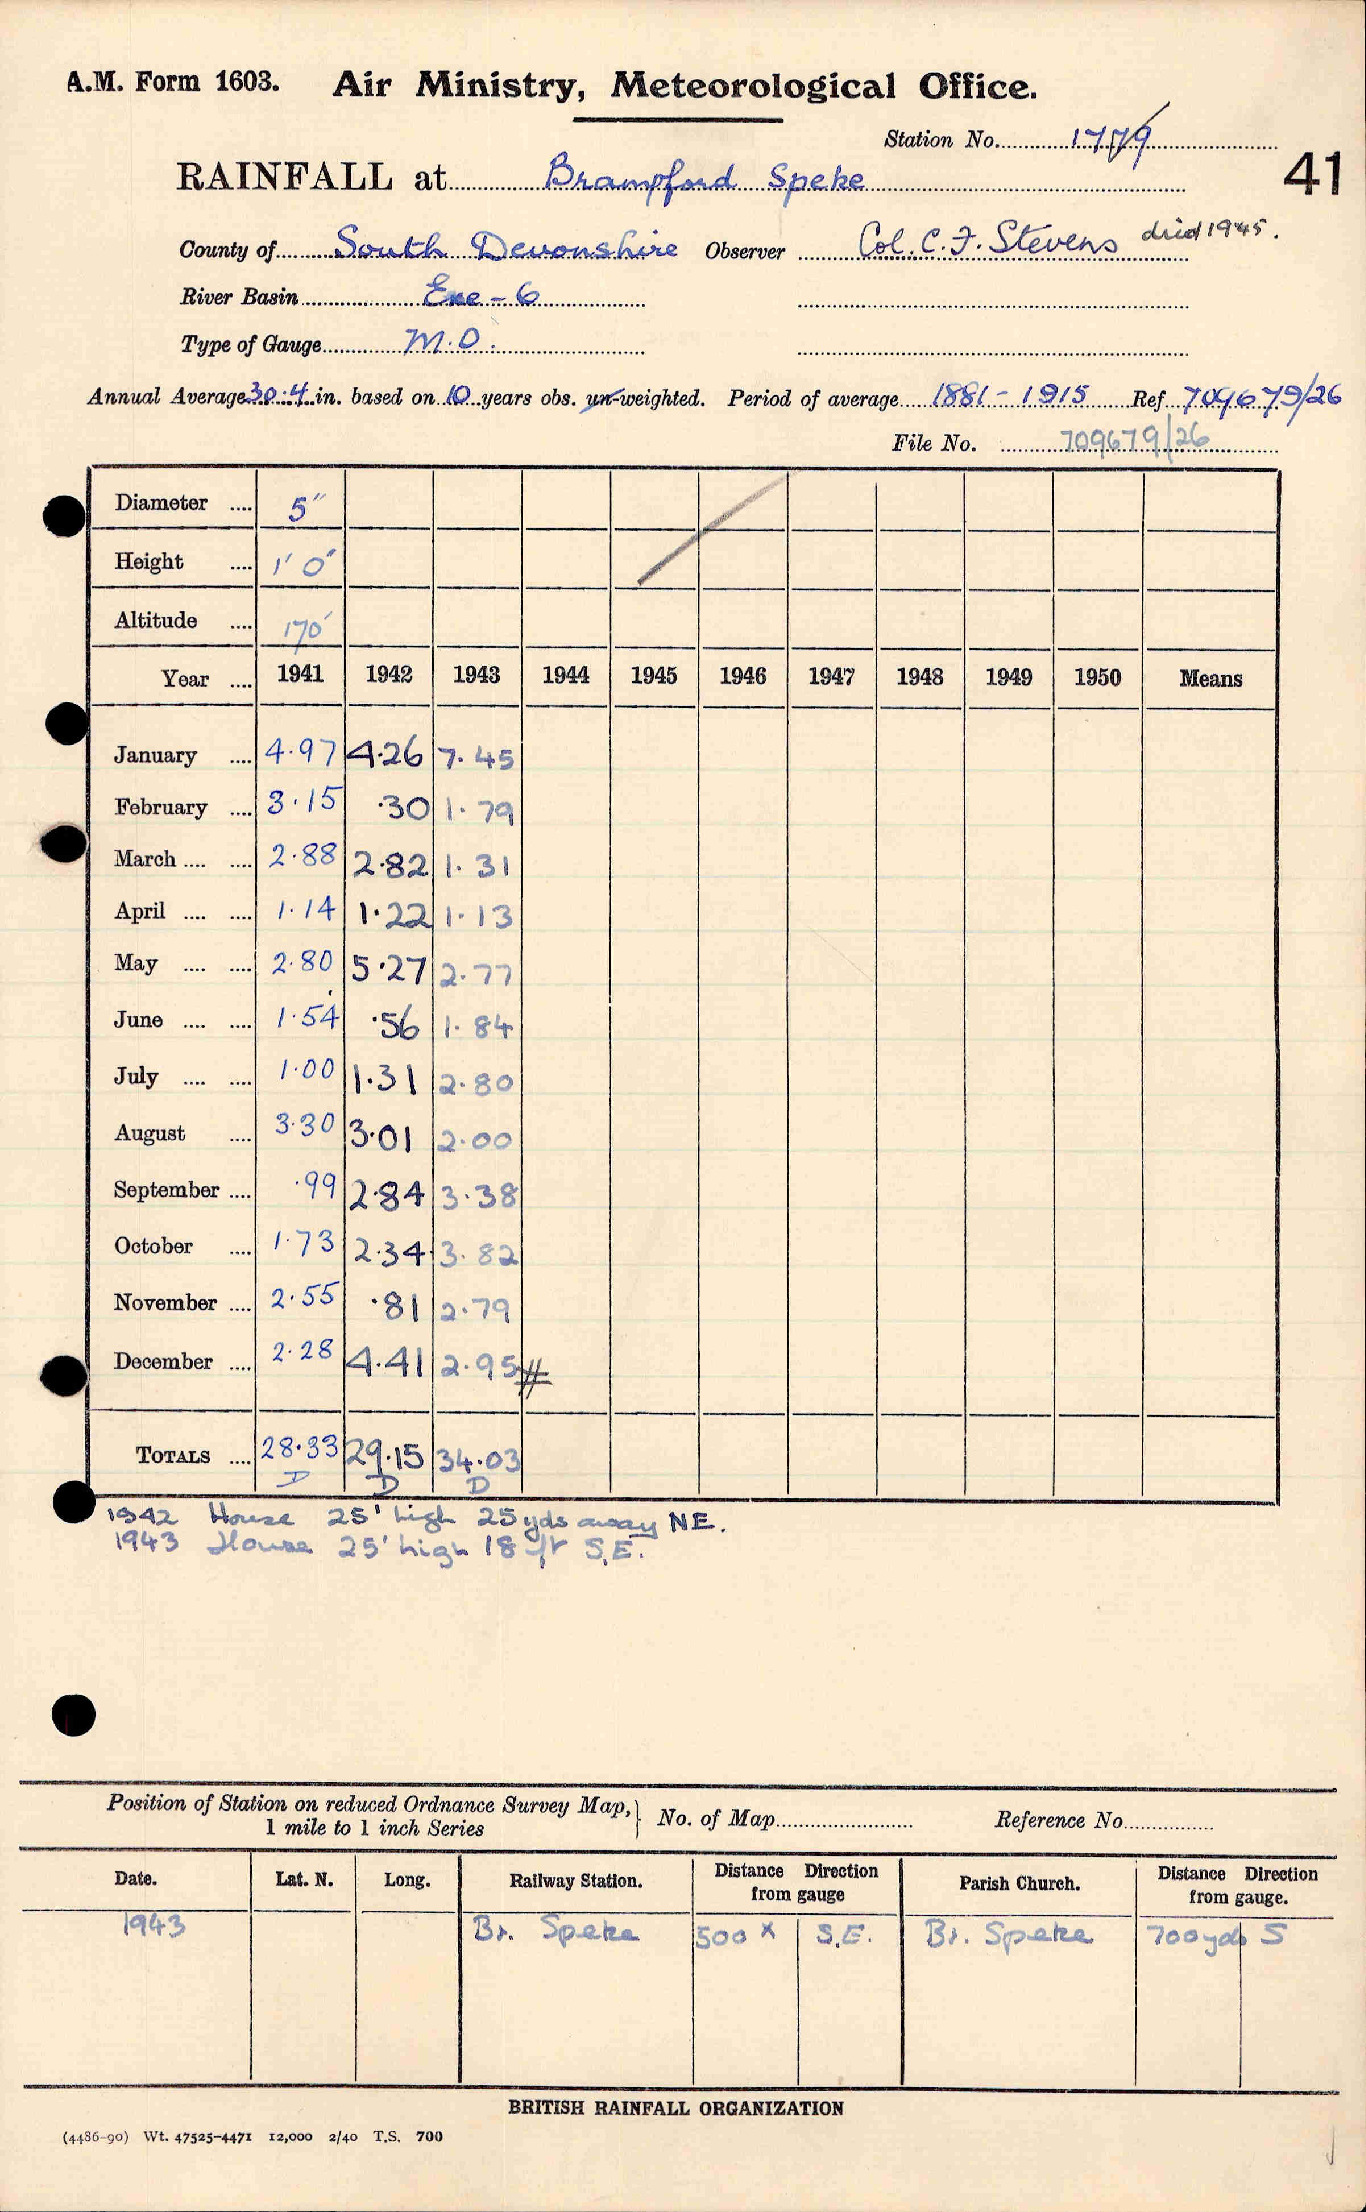 A.M. Form 1603. Air Ministry, Meteorological Office.
Station No. 1779
41
RAINFALL at Brampford Speke
County of South Devonshire Observer Col. C. F. Stevens died 1945.
River Basin Exe - 6
Type of Gauge M.O.
Annual Average 30.4 in. based on 10 years obs. un-weighted. Period of average 1881 - 1915 Ref 709679/26
File No. 709679/26
Diameter .... 5"
Height .... 1' 0"
Altitude .... 170'
Year .... 1941 1942 1943 1944 1945 1946 1947 1948 1949 1950 Means
January .... 4.97 4.26 7.45
February .... 3.15 .30 1.79
March .... .... 2.88 2.82 1.31
April .... .... 1.14 1.22 1.13
May .... .... 2.80 5.27 2.77
June .... .... 1.54 .56 1.84
July .... .... 1.00 1.31 2.80
August .... 3.30 3.01 2.00
September .... .99 2.84 3.38
October .... 1.73 2.34 3.82
November .... 2.55 .81 2.79
December .... 2.28 4.41 2.95 #
TOTALS .... 28.33 29.15 34.03
D D D
1942 House 25' high 25 yds away NE.
1943 House 25' high 18 S.E.
Position of Station on reduced Ordnance Survey Map, 1 mile to 1 inch Series } No. of Map Reference No.
Date. Lat. N. Long. Railway Station. Distance Direction from gauge Parish Church. Distance Direction from gauge.
1943 Br. Speke 500 x S.E. Br. Speke 700 yds S
BRITISH RAINFALL ORGANIZATION
(4486-90) Wt. 47525-4471 12,000 2/40 T.S. 700